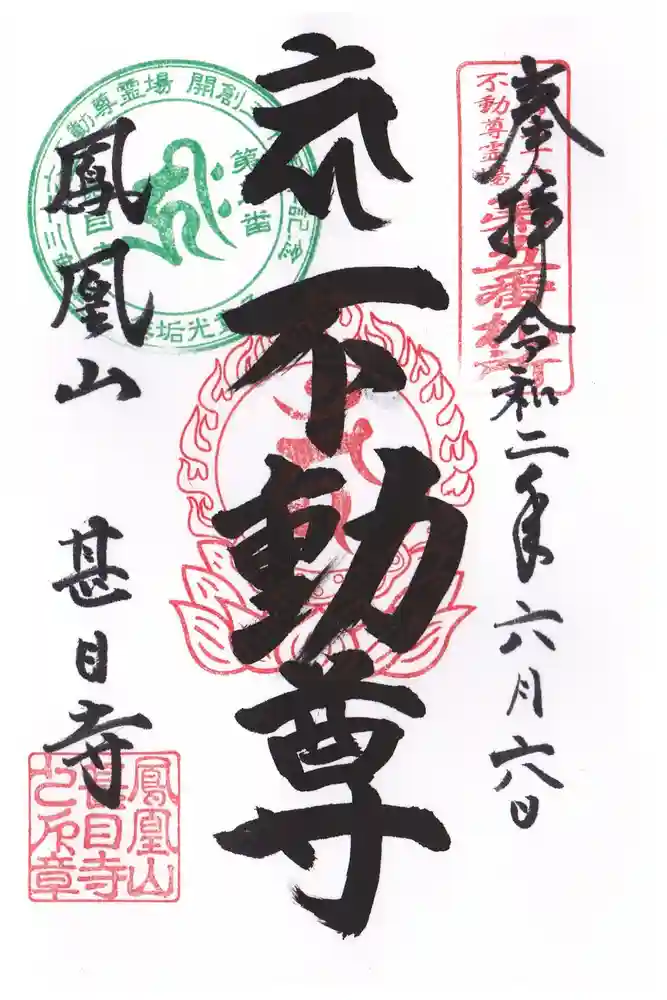 奉拝 令和二年六月六日
不動尊霊場
第五番札所
不動尊
鳳凰山 甚目寺
不動尊霊場 開創
鳳凰山
甚目寺
之印章